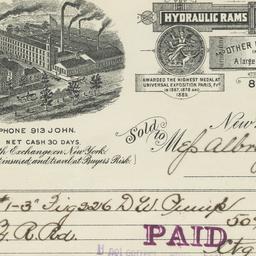 HYDRAULIC RAMS
OTHER
A large
AWARDED THE HIGHEST MEDAL AT
UNIVERSAL EXPOSITION PARIS, F
IN 1867, 1878 AND
1889.
PHONE 913 JOHN.
NET CASH 30 DAYS.
th Exchange on New York
insured, and travel at Buyers Risk
New
Sold to Mess Albr
1-3" Fig 226 D.W. Pump
50
PAID